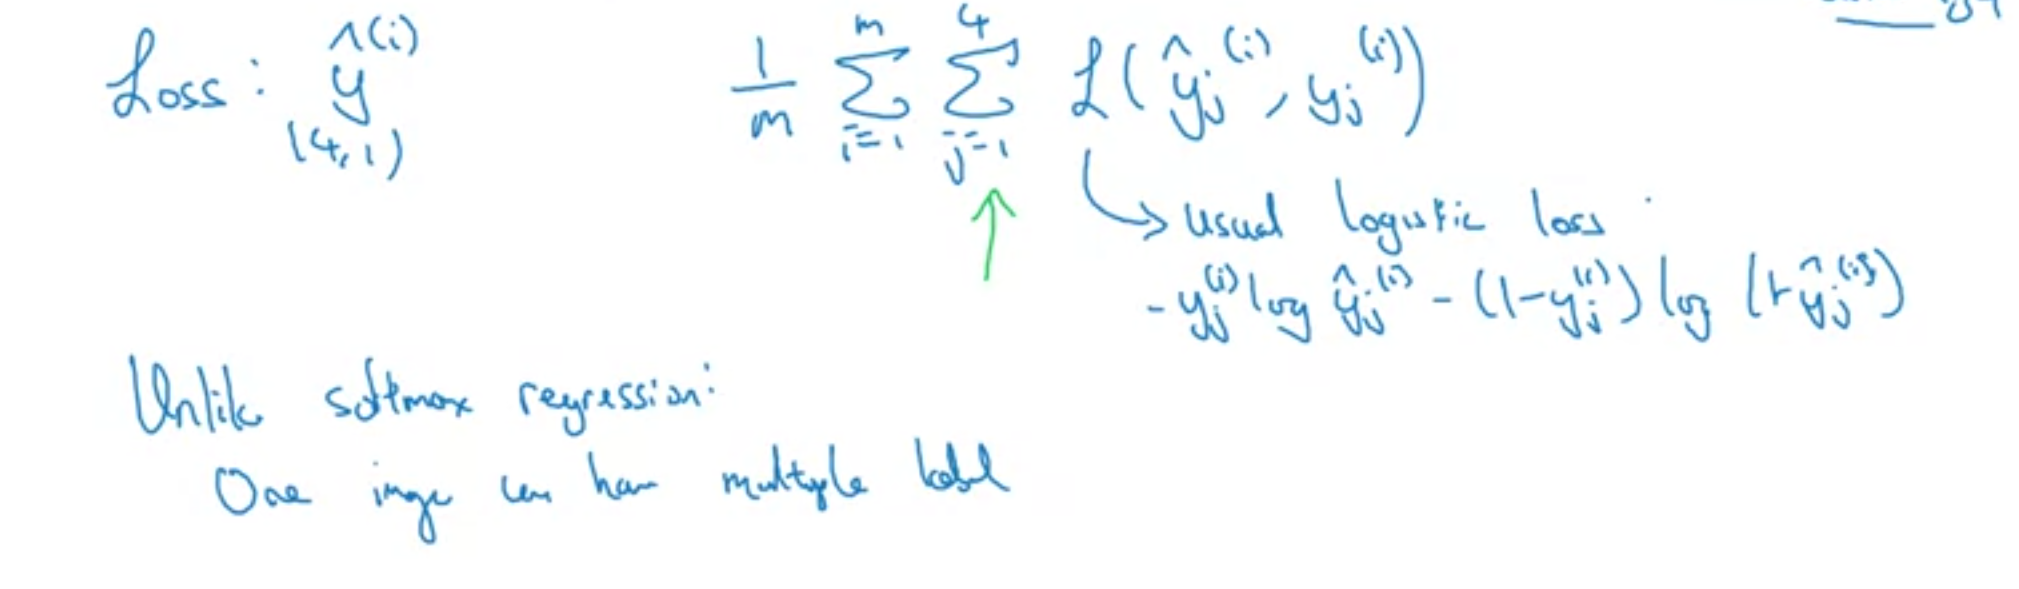 Loss: ŷ^(i) (4,1) 1/m Σ_{i=1}^{m} Σ_{j=1}^{4} ℒ(ŷ_j^(i), y_j^(i))
→ usual logistic loss
- y_j^(i) log ŷ_j^(i) - (1-y_j^(i)) log (1-ŷ_j^(i))
Unlike softmax regression:
One image can have multiple label